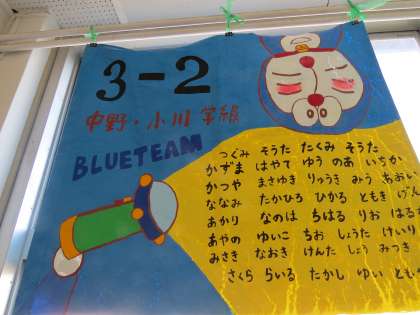 3-2
中野・小川学級
BLUETEAM
つぐみ そうた たくみ そうた
かずま はやて ゆう のあ いちか
かつや まさゆき りゅうき みう あおい
ななみ たかひろ ひかる ともき
あかり なのは ちはる りお
あやの ゆいこ ちお しょうた けいり
みさき なおき けんた しょう みつき
さくら らいる たかし ゆい